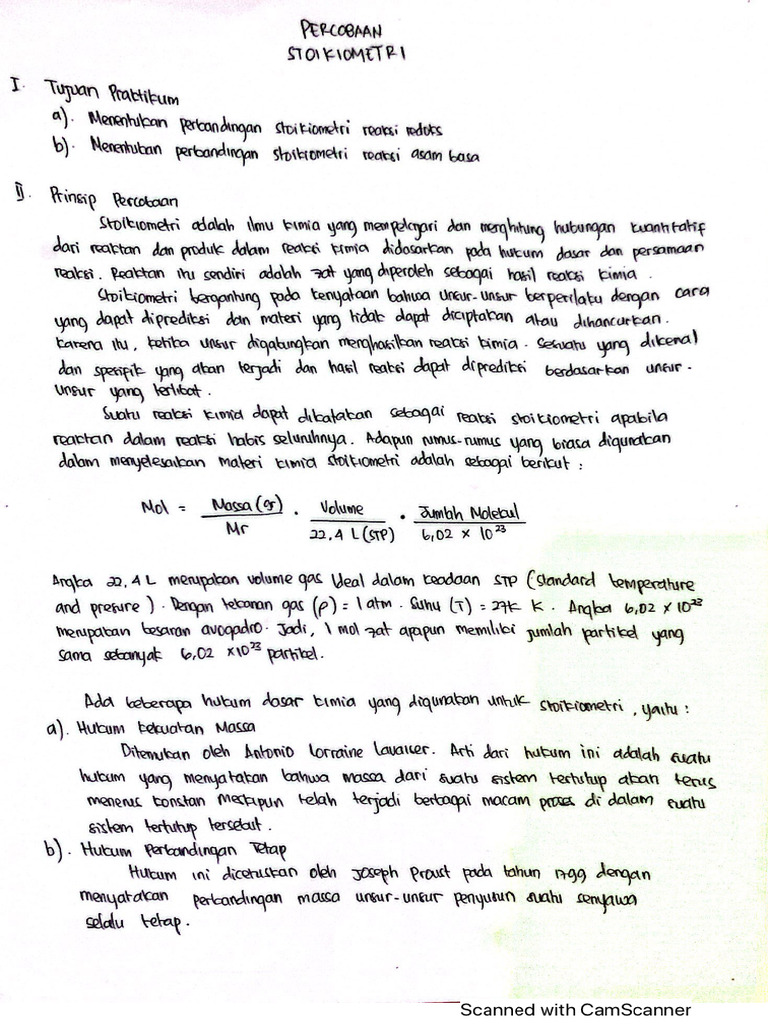 PERCOBAAN
STOIKIOMETRI
I. Tujuan Praktikum
a). Menentukan perbandingan stoikiometri reaksi redoks
b). Menentukan perbandingan stoikiometri reaksi asam basa
II. Prinsip Percobaan
Stoikiometri adalah ilmu kimia yang mempelajari dan menghitung hubungan kuantitatif
dari reaktan dan produk dalam reaksi kimia didasarkan pada hukum dasar dan persamaan
reaksi. Reaktan itu sendiri adalah zat yang diperoleh sebagai hasil reaksi kimia.
Stoikiometri bergantung pada kenyataan bahwa unsur-unsur berperilaku dengan cara
yang dapat diprediksi dan materi yang tidak dapat diciptakan atau dihancurkan.
Karena itu, ketika unsur digabungkan menghasilkan reaksi kimia. Sesuatu yang dikenal
dan spesifik yang akan terjadi dan hasil reaksi dapat diprediksi berdasarkan unsur-
unsur yang terlibat.
Suatu reaksi kimia dapat dikatakan sebagai reaksi stoikiometri apabila
reaktan dalam reaksi habis seluruhnya. Adapun rumus-rumus yang biasa digunakan
dalam menyelesaikan materi kimia stoikiometri adalah sebagai berikut :
Mol = Massa (gr) / Mr . Volume / 22,4 L (STP) . Jumlah Molekul / 6,02 x 10²³
Angka 22,4 L merupakan volume gas Ideal dalam keadaan STP (standard temperature
and presure). Dengan tekanan gas (P) = 1 atm. Suhu (T) = K. Angka 6,02 x 10²³
merupakan besaran avogadro. Jadi, 1 mol zat apapun memiliki jumlah partikel yang
sama sebanyak 6,02 x 10²³ partikel.
Ada beberapa hukum dasar kimia yang digunakan untuk stoikiometri, yaitu :
a). Hukum Kekuatan Massa
Ditemukan oleh Antonio Lorraine Lavaiser. Arti dari hukum ini adalah suatu
hukum yang menyatakan bahwa massa dari suatu sistem tertutup akan terus
menerus konstan meskipun telah terjadi berbagai macam proses di dalam suatu
sistem tertutup tersebut.
b). Hukum Perbandingan Tetap
Hukum ini dicetuskan oleh Joseph Proust pada tahun 1799 dengan
menyatakan perbandingan massa unsur-unsur penyusun suatu senyawa
selalu tetap.
Scanned with CamScanner